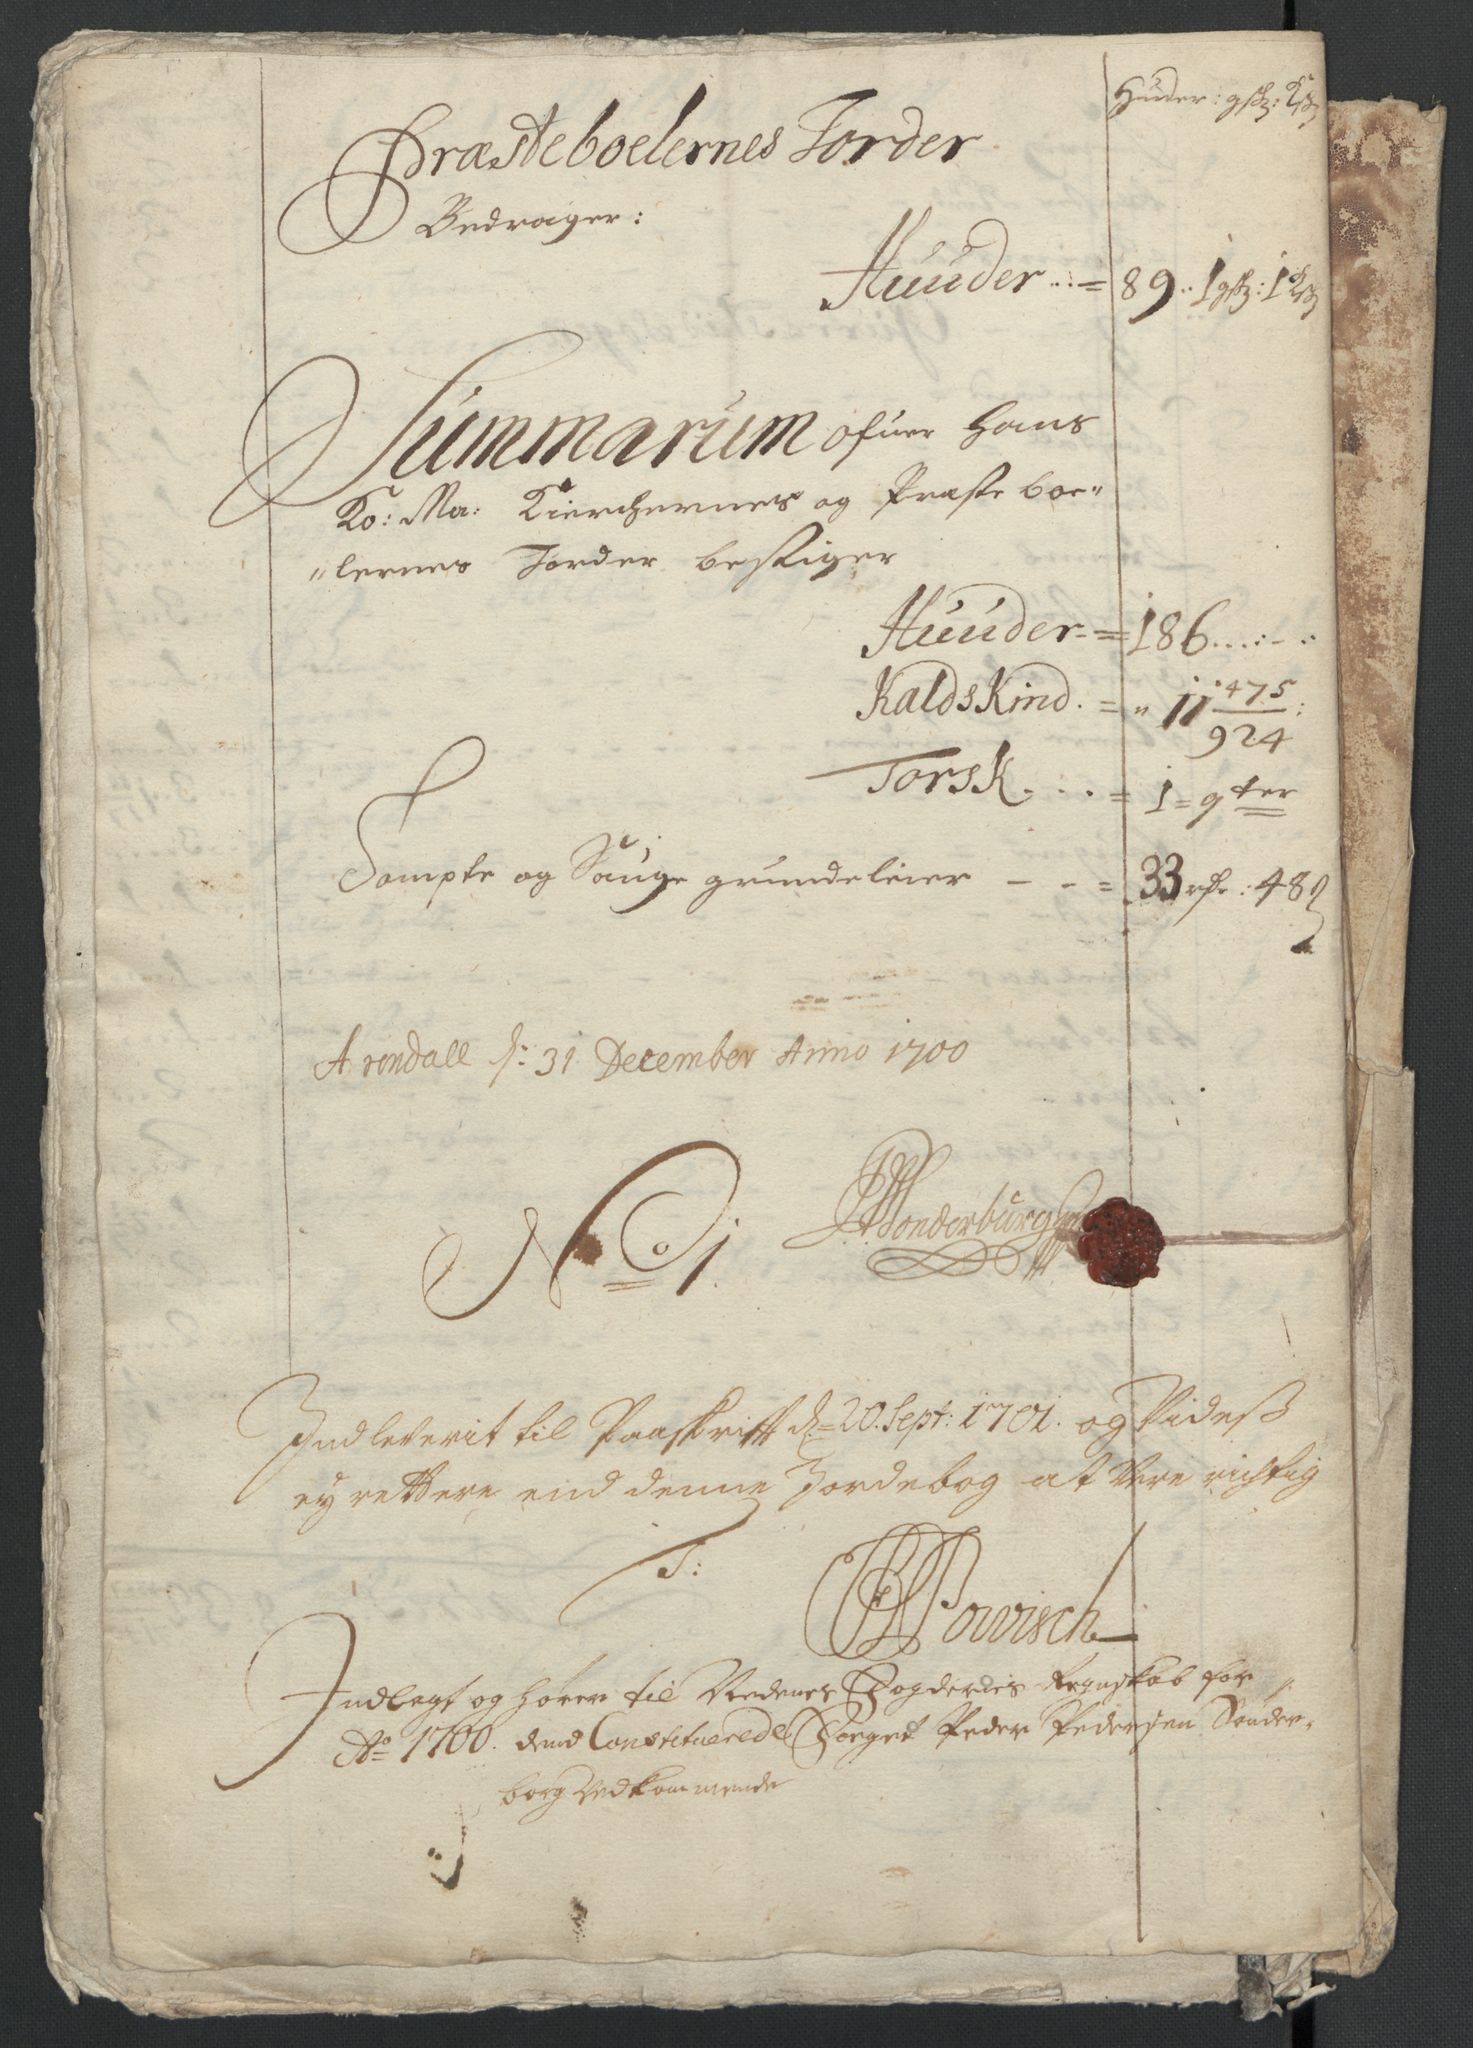 Huder: gsk: Ksk
Præsteboelernes Jorder
Bedrager:
Huuder..= 89..1gsk: 1Ksk
Summarum ofuer Hans
Ko: Ma: Kierchernes og Præste boe„
„lernes Jorder bestiger
Huuder-=186...:-.:
KaldsKind.=„ 11 475/924:
Torsk...= 1=qter
Tompte og Sauge grundeleier - - = 33 rdr: 48 ß
Arendall d: 31 December Anno 1700
No 1.
PPSonderburg
Indleverit til Paaskrifft d=20. Sept: 1701. og Videß
ey rettere end denne Jordebog at Være richtig
T:
Powisch
Indlagt og hører til Nedenes Fogderies Regnskab for
Ao 1700. dend Constituerede Foeget Peder Pedersen Sønder„
borg Vedkommende